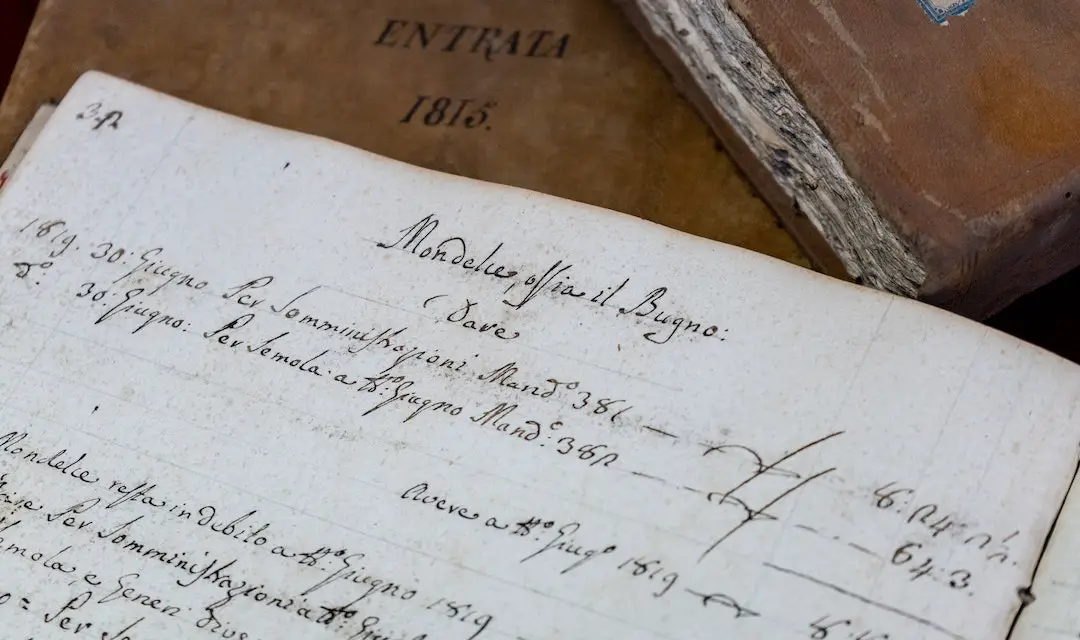 ENTRATA
1815.
32
Mondelce, ossia il Bugno:
Dare
1819. 30: Giugno Per Somministrazioni Mand:o 381
do. 30. Giugno: Per Semola a tt:o Giugno Mand:o 382
64. 3.
Avere a tt:o Giug:o 1819
Mondelce resta in debito a tt:o Giugno 1819
Per Somministrazioni a tt:o
Semola, e Generi
= Per